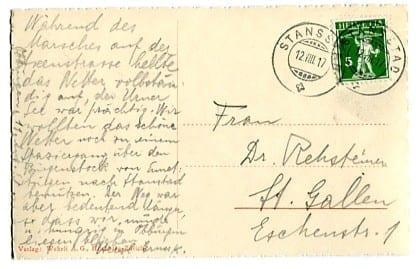 Während des
Marsches auf der
Axenstrasse hellte
das Wetter vollstän-
dig auf der Urner
See war prächtig. Wir
wollten das schöne
Wetter noch zu einem
Spaziergang über den
Bürgenstock von
nach Stansstad
benützen. Der Weg war
aber bedeutend länger
so dass wir müde
u. hungrig in
Verlag: Wehrli A. G.,
STANSSTAD
12.VIII.17
HELVETIA
5
Frau
Dr. Rehsteiner
St. Gallen
Eschenstr. 1